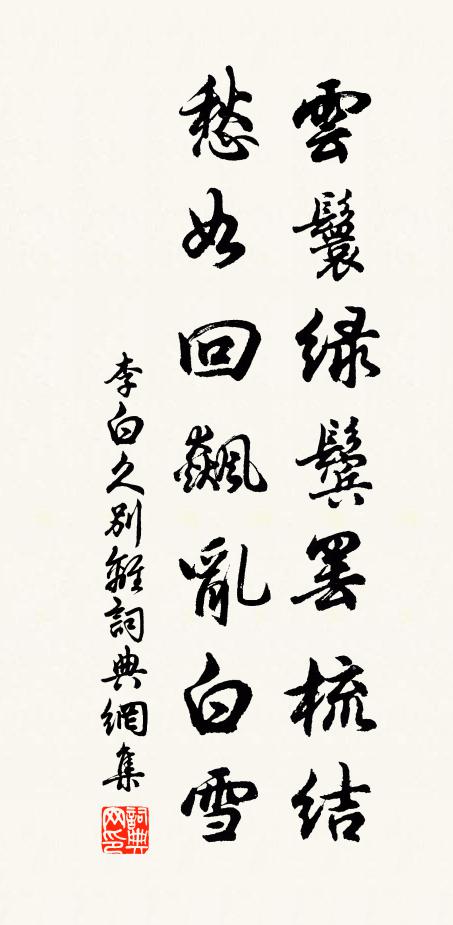 雲鬟綠鬓罷梳結
愁如回飆亂白雪
李白久別離詞典網集
詞典網印